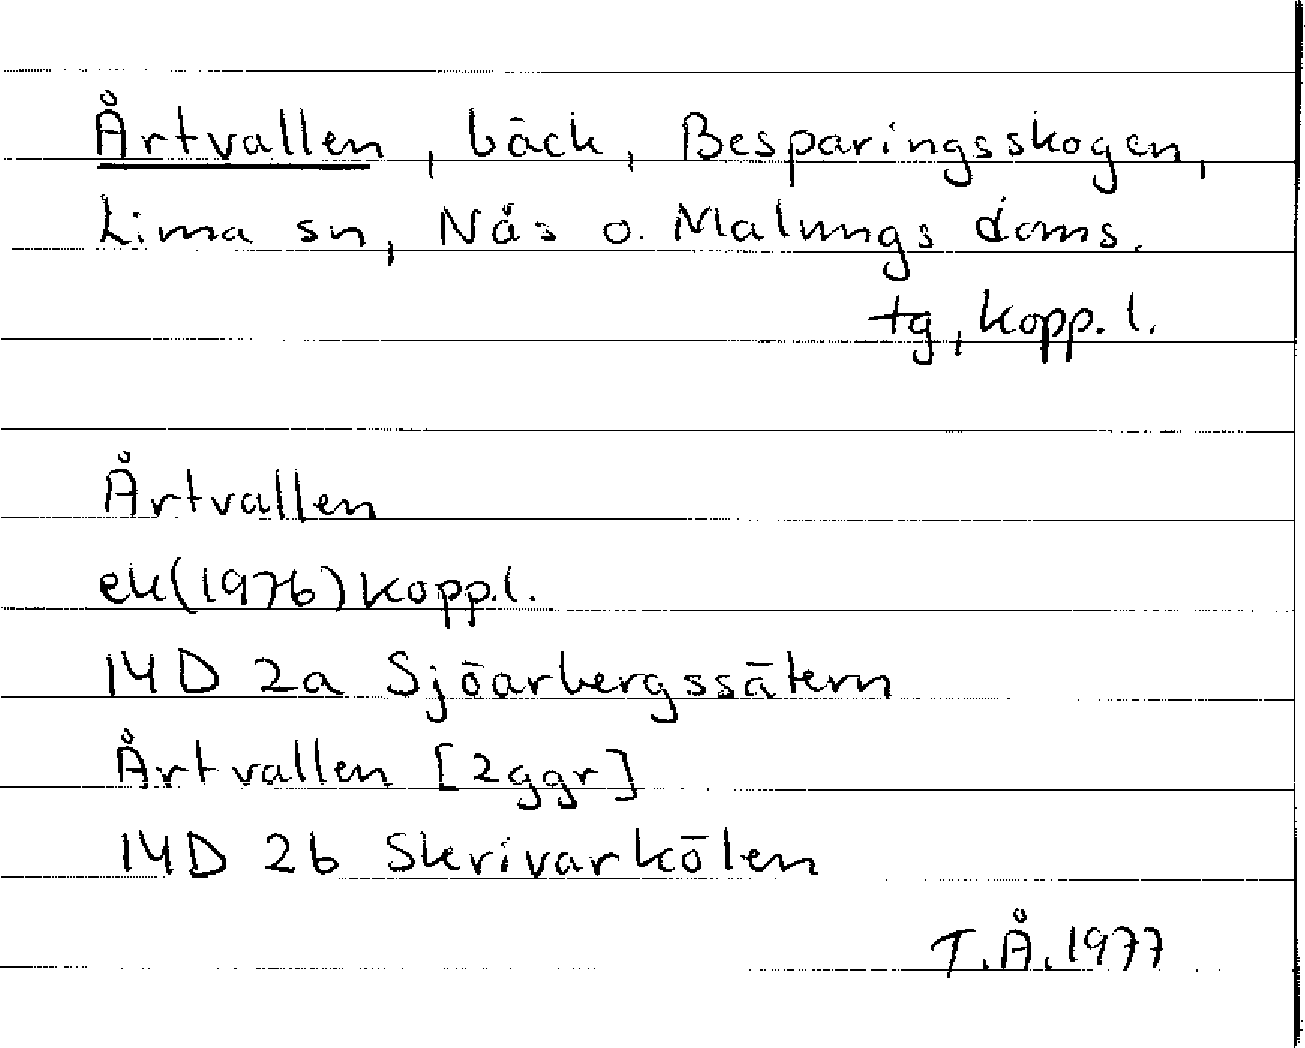 Årtvallen, bäck, Besparingsskogen,
Lima sn, Nås o. Malungs doms.
tg, Kopp. l.
Årtvallen
ek(1976)Kopp.l.
14D 2a Sjöarbergssätern
Årtvallen [2ggr]
14D 2b Skrivarkölen
T.Å.1977